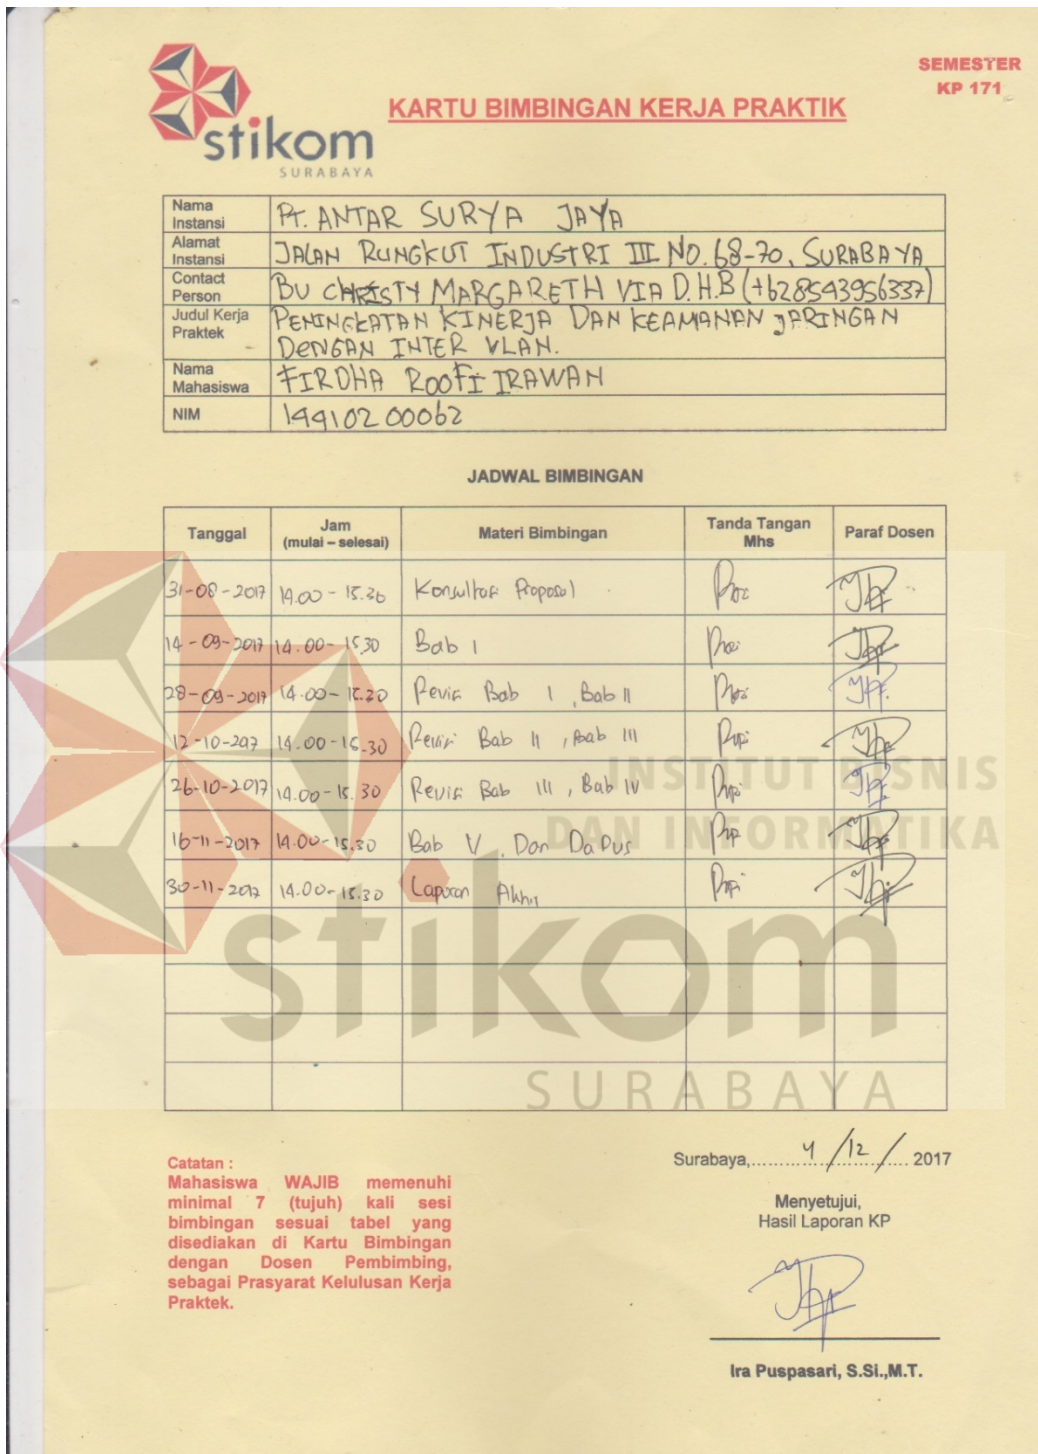 SEMESTER
KP 171
stikom
SURABAYA
KARTU BIMBINGAN KERJA PRAKTIK
Nama Instansi PT. ANTAR SURYA JAYA
Alamat Instansi JALAN RUNGKUT INDUSTRI III NO. 68-70, SURABAYA
Contact Person BU CHRISTY MARGARETH VIA D.H.B (+628543956337)
Judul Kerja Praktek PENINGKATAN KINERJA DAN KEAMANAN JARINGAN
DENGAN INTER VLAN.
Nama Mahasiswa FIRDHA ROOFI IRAWAN
NIM 14410200062
JADWAL BIMBINGAN
Tanggal Jam (mulai – selesai) Materi Bimbingan Tanda Tangan Mhs Paraf Dosen
31-08-2017 14.00 - 15.30 Konsultasi Proposal
14-09-2017 14.00 - 15.30 Bab I
28-09-2017 14.00 - 15.30 Revisi Bab I, Bab II
12-10-2017 14.00 - 15.30 Revisi Bab II, Bab III
26-10-2017 14.00 - 15.30 Revisi Bab III, Bab IV
16-11-2017 14.00 - 15.30 Bab V Dan Dapus
30-11-2017 14.00 - 15.30 Laporan Akhir
INSTITUT BISNIS
DAN INFORMATIKA
stikom
SURABAYA
Catatan :
Mahasiswa WAJIB memenuhi
minimal 7 (tujuh) kali sesi
bimbingan sesuai tabel yang
disediakan di Kartu Bimbingan
dengan Dosen Pembimbing,
sebagai Prasyarat Kelulusan Kerja
Praktek.
Surabaya, 4/12/ 2017
Menyetujui,
Hasil Laporan KP
Ira Puspasari, S.Si.,M.T.